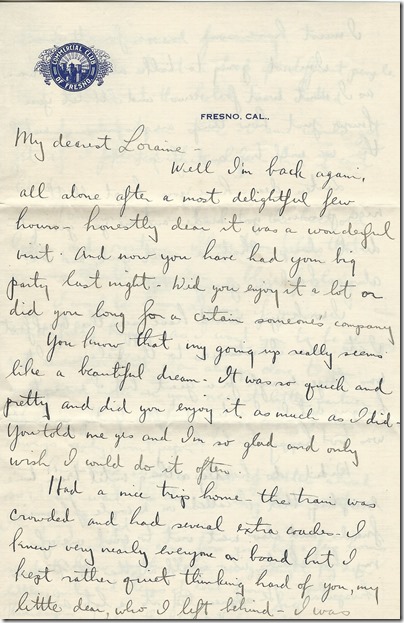 COMMERCIAL CLUB
OF FRESNO.
FRESNO, CAL.,
My dearest Loraine -
Well I'm back again,
all alone after a most delightful few
hours - honestly dear it was a wonderful
visit. And now you have had your big
party last night - Did you enjoy it a lot or
did you long for a certain someone's company
You know that my going up really seems
like a beautiful dream - It was so quick and
pretty and did you enjoy it as much as I did -
You told me yes and I'm so glad and only
wish I could do it often.
Had a nice trip home - the train was
crowded and had several extra coaches - I
knew very nearly everyone on board but I
kept rather quiet thinking hard of you, my
little dear, who I left behind - I was